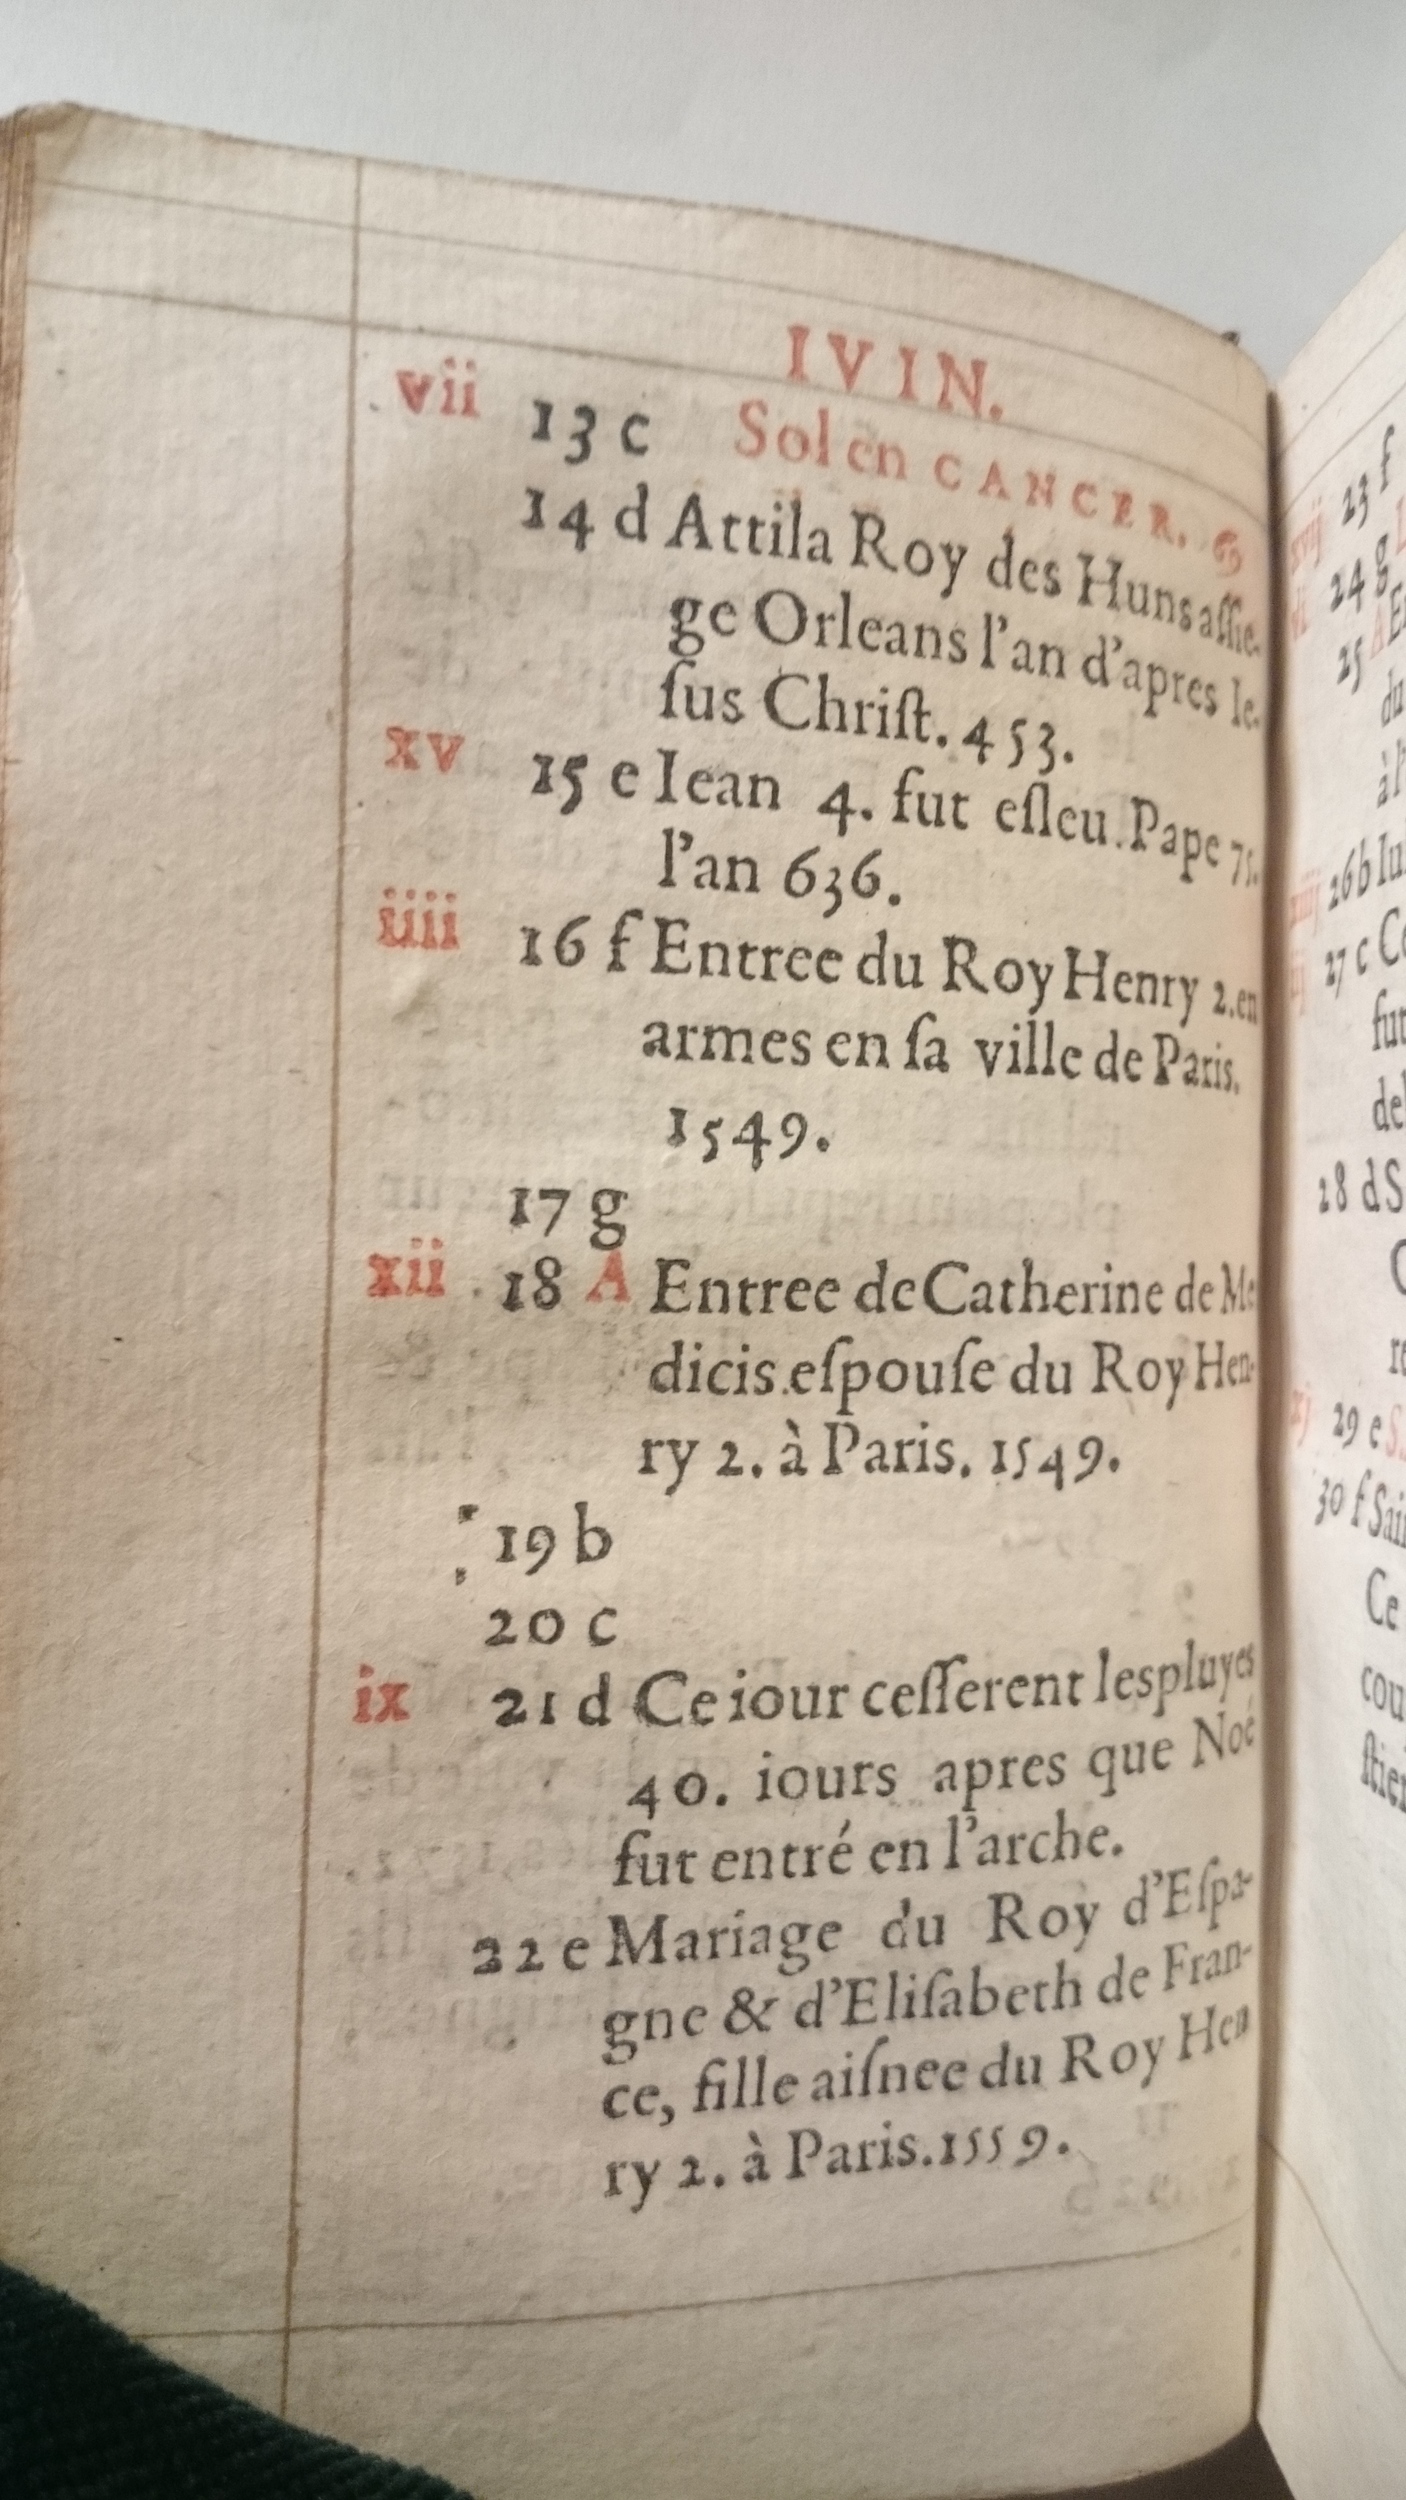 IVIN.
vii 13 c Sol en CANCER. ♋
14 d Attila Roy des Huns aſſie-
ge Orleans l'an d'apres Ie-
ſus Chriſt. 453.
xv 15 e Iean 4. fut eſleu Pape 75.
l'an 636.
iiii 16 f Entree du Roy Henry 2. en
armes en ſa ville de Paris.
1549.
17 g
xii 18 A Entree de Catherine de Me
dicis eſpouſe du Roy Hen-
ry 2. à Paris. 1549.
19 b
20 c
ix 21 d Ce iour ceſſerent les pluyes
40. iours apres que Noé
fut entré en l'arche.
22 e Mariage du Roy d'Eſpa-
gne & d'Eliſabeth de Fran-
ce, fille aiſnee du Roy Hen
ry 2. à Paris. 1559.
xvij 23 f
24 g
25 A
du
26 b Iu
27 c Co
fut
del
28 d S
29 e S
30 f Sai
Ce
cou
ſtier